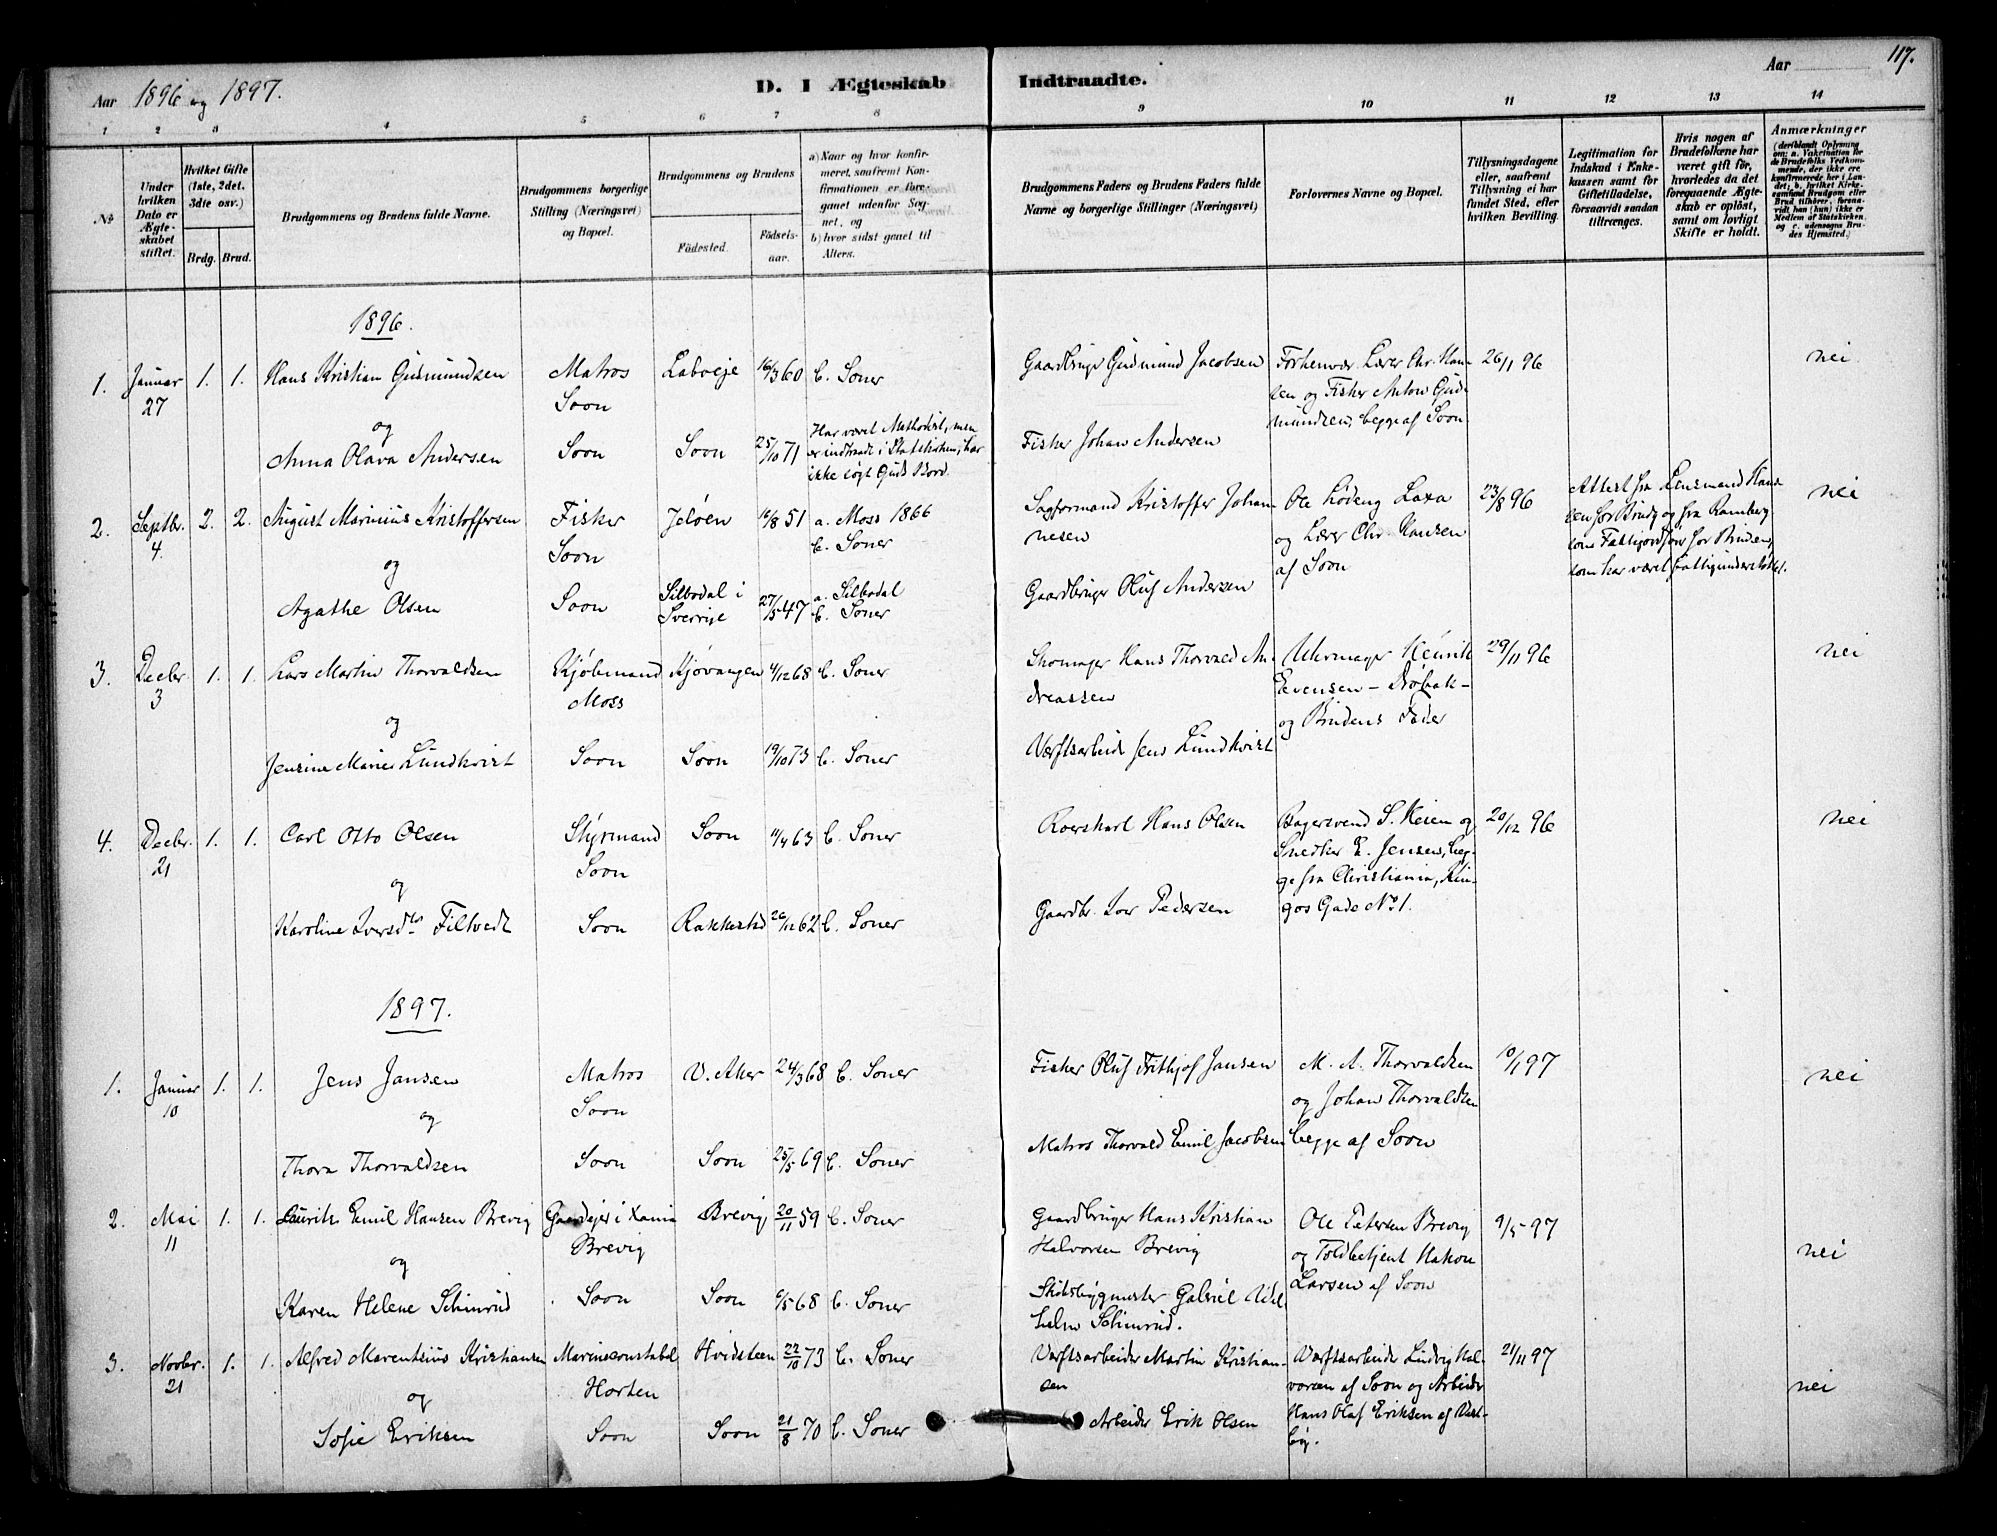 Aar 1896 og 1897.
D. I Ægteskab Indtraadte.
Aar
117.
1 2 3 4 5 6 7 8 9 10 11 12 13 14
№
Under hvilken Dato er Ægteskabet stiftet.
Hvilket Gifte (1ste, 2det. 3dte osv.)
Brdg. Brud.
Brudgommens og Brudens fulde Navne.
Brudgommens borgerlige Stilling (Næringsvei) og Bopæl.
Brudgommens og Brudens
Födested.
Födselsaar.
a) Naar og hvor konfirmeret, saafremt Konfirmationen er foregaaet udenfor Sognet, og
b) hvor sidst gaaet til Alters.
Brudgommens Faders og Brudens Faders fulde Navne og borgerlige Stillinger (Næringsvei)
Forlovernes Navne og Bopæl.
Tillysningsdagene eller, saafremt Tillysning ei har fundet Sted, efter hvilken Bevilling.
Legitimation for Indskud i Enkekassen samt for Giftetilladelse, forsaavidt saadan tiltrænges.
Hvis nogen af Brudefolkene har været gift för, hvorledes da det foregaaende Ægteskab er oplöst, samt om lovligt Skifte er holdt.
Anmærkninger
(deriblandt Oplysning om: a. Vakcination for de Brudefolks Vedkommende, der ikke ere konfirmerede her i Landet; b. hvilket Kirkesamfund Brudgom eller Brud tilhörer, forsaavidt han (hun) ikke er Medlem af Statskirken, og c. udensogns Brudes Hjemsted.)
1896.
1. Januar 27 1. 1. Hans Kristian Gudmundsen Matros Soon Laboeje 16/3 60 b. Soner
Gaardbruger Gudmund Jacobsen
Forhenvær. Lærer Chr. Hansen og Fisker Anton Gudmundsen, begge af Soon
26/1 96
nei
og
Anna Olava Andersen Soon Soon 25/10 71 Har været Methodist, men er indtraadt i Statskirken, har ikke søgt Guds Bord.
Fisker Johan Andersen
2. Septbr. 4. 2. 2. August Marinius Kristoffersen Fisker Soon Jeløen 16/8 51 a. Moss 1866 b. Soner
Sagformand Kristoffer Johannesen
Ole Lødeng Laxa og Lærer Chr. Hansen af Soon
23/8 96
Attest fra Lensmand Hansen for Brudg og fra Ramberg som Fattigforst. for Bruden, som har været fattigunderstøttet.
nei
og
Agathe Olsen Soon Silbodal i Sverrige 27/5 47 a. Silbodal b. Soner
Gaardbruger Oluf Andersen
3. Decbr 3 1. 1. Lars Martin Thorvaldsen Kjøbmand Moss Kjøvangen 4/12 68 b. Soner
Skomager Hans Thorvald Andreassen
Uhrmager Henrik Evensen – Drøbak – og Brudens Fader
29/11 96
nei
og
Jensine Marie Lundkvist Soon Soon 19/10 73 b. Soner
Værftsarbeid. Jens Lundkvist
4. Decbr. 21 1. 1. Carl Otto Olsen Styrmand Soon Soon 11/4 63 b. Soner
Roerskarl Hans Olsen
Bagersvend S. Heien og Snedker E. Jensen, begge fra Christiania, Ringos Gade No 1.
20/12 96
nei
og
Karoline Iversdtr Filtvedt Soon Rakkestad 26/12 62 b. Soner
Gaardbr. Iver Pedersen
1897.
1. Januar 10 1. 1. Jens Jansen Matros Soon V. Aker 24/3 68 b. Soner
Fisker Oluf Frithjof Jansen
M. A. Thorvaldsen og Johan Thorvaldsen begge af Soon
10/1 97
nei
og
Thora Thorvaldsen Soon Soon 25/5 69 b. Soner
Matros Thorvald Emil Jacobsen
2. Mai 11 1. 1. Laurits Emil Hansen Brevig Gaardejer i Xania Brevig Brevig 20/11 59 b. Soner
Gaardbruger Hans Kristian Halvorsen Brevig
Ole Petersen Brevig og Toldbetjent Hakon Larsen af Soon
9/5 97
nei
og
Karen Helene Schinrud Soon Soon 6/5 68 b. Soner
Skibsbygmester Gabriel Vilhelm Schinrud.
3. Novbr. 21 1. 1. Alfred Marentsius Kristiansen Marineconstabel Horten Hvidsteen 22/10 73 b. Soner
Værftsarbeider Martin Kristiansen
Værftsarbeide Ludvig Halvorsen af Soon og Arbeider Hans Olaf Eriksen af Vestby.
21/11 97
nei
og
Sofie Eriksen Soon Soon 21/8 70 b. Soner
Arbeider Erik Olsen